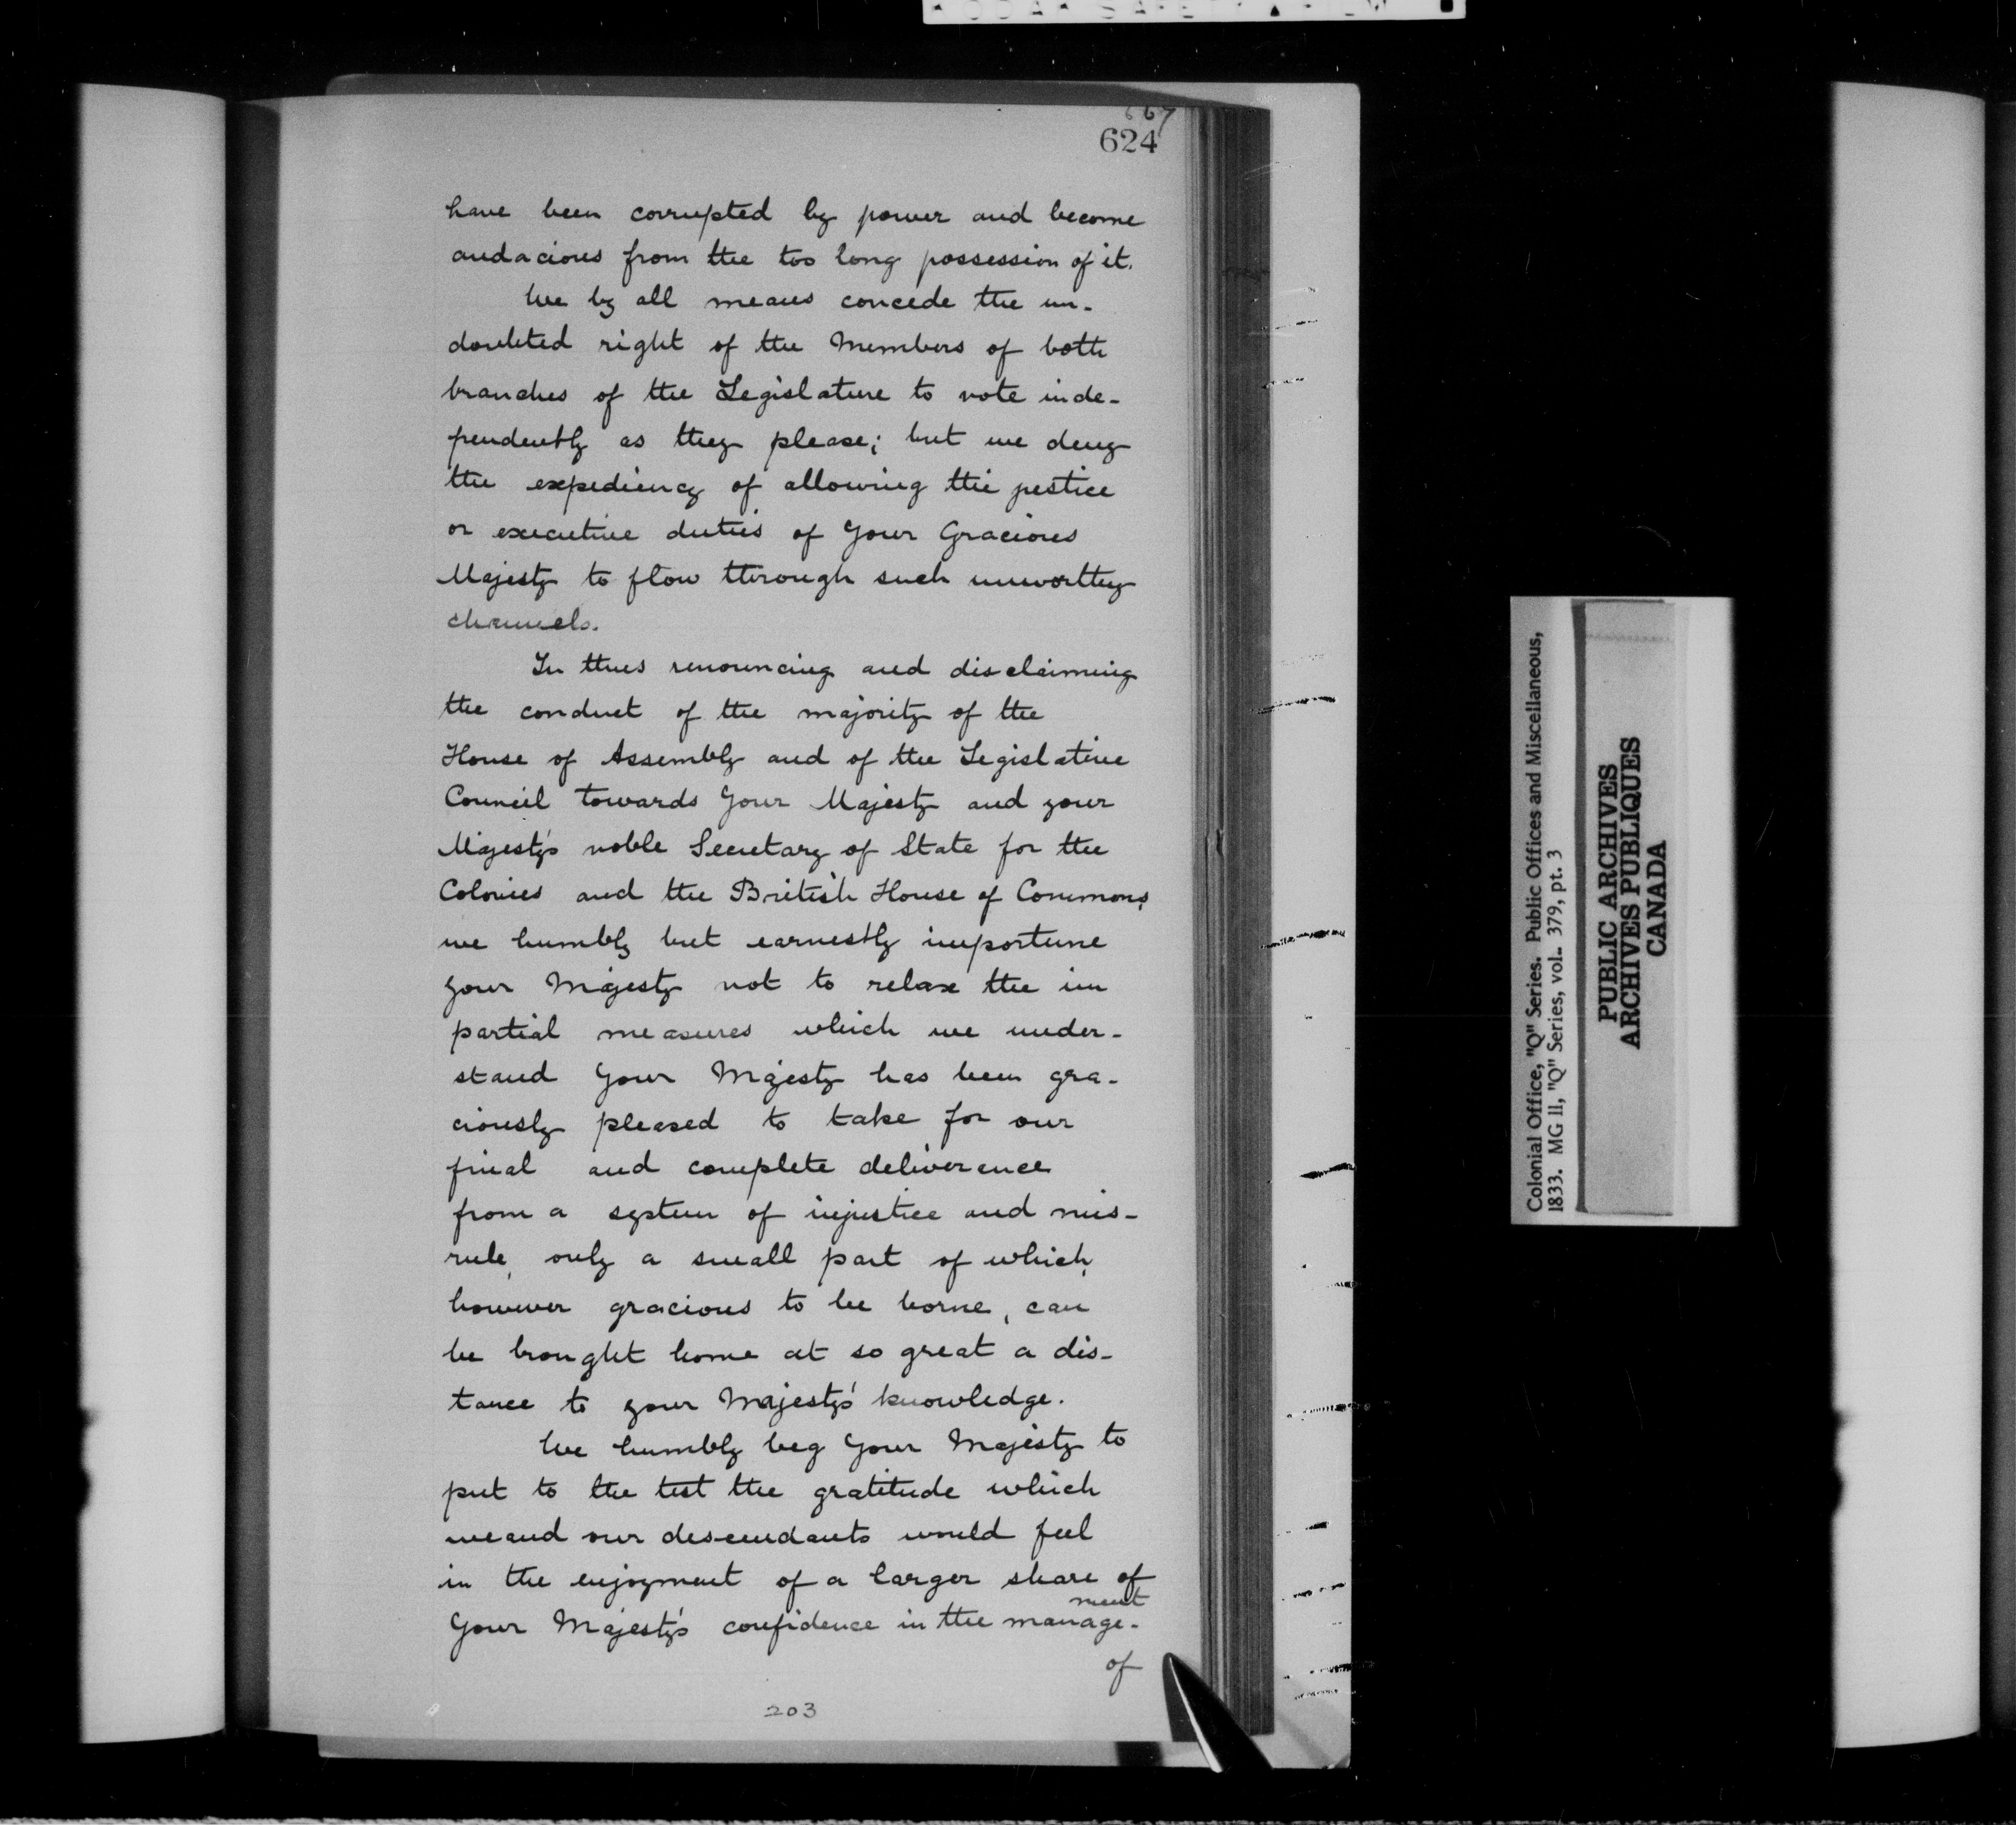 667
624
have been corrupted by power and become
audacious from the too long possession of it.
We by all means concede the un-
doubted right of the Members of both
branches of the Legislature to vote inde-
pendently as they please; but we deny
the expediency of allowing the justice
or executive duties of Your Gracious
Majesty to flow through such unworthy
channels.
In thus renouncing and disclaiming
the conduct of the majority of the
House of Assembly and of the Legislative
Council towards Your Majesty and your
Majesty's noble Secretary of State for the
Colonies and the British House of Commons,
we humbly but earnestly importune
your Majesty not to relax the im
partial measures which we under-
stand Your Majesty has been gra-
ciously pleased to take for our
final and complete deliverence
from a system of injustice and mis-
rule, only a small part of which,
however gracious to be borne, can
be brought home at so great a dis-
tance to your Majesty's knowledge.
We humbly beg Your Majesty to
put to the test the gratitude which
we and our descendants would feel
in the enjoyment of a larger share of
Your Majesty's confidence in the manage-
ment
of
203
Colonial Office, "Q" Series. Public Offices and Miscellaneous,
1833. MG 11, "Q" Series, vol. 379, pt. 3
PUBLIC ARCHIVES
ARCHIVES PUBLIQUES
CANADA